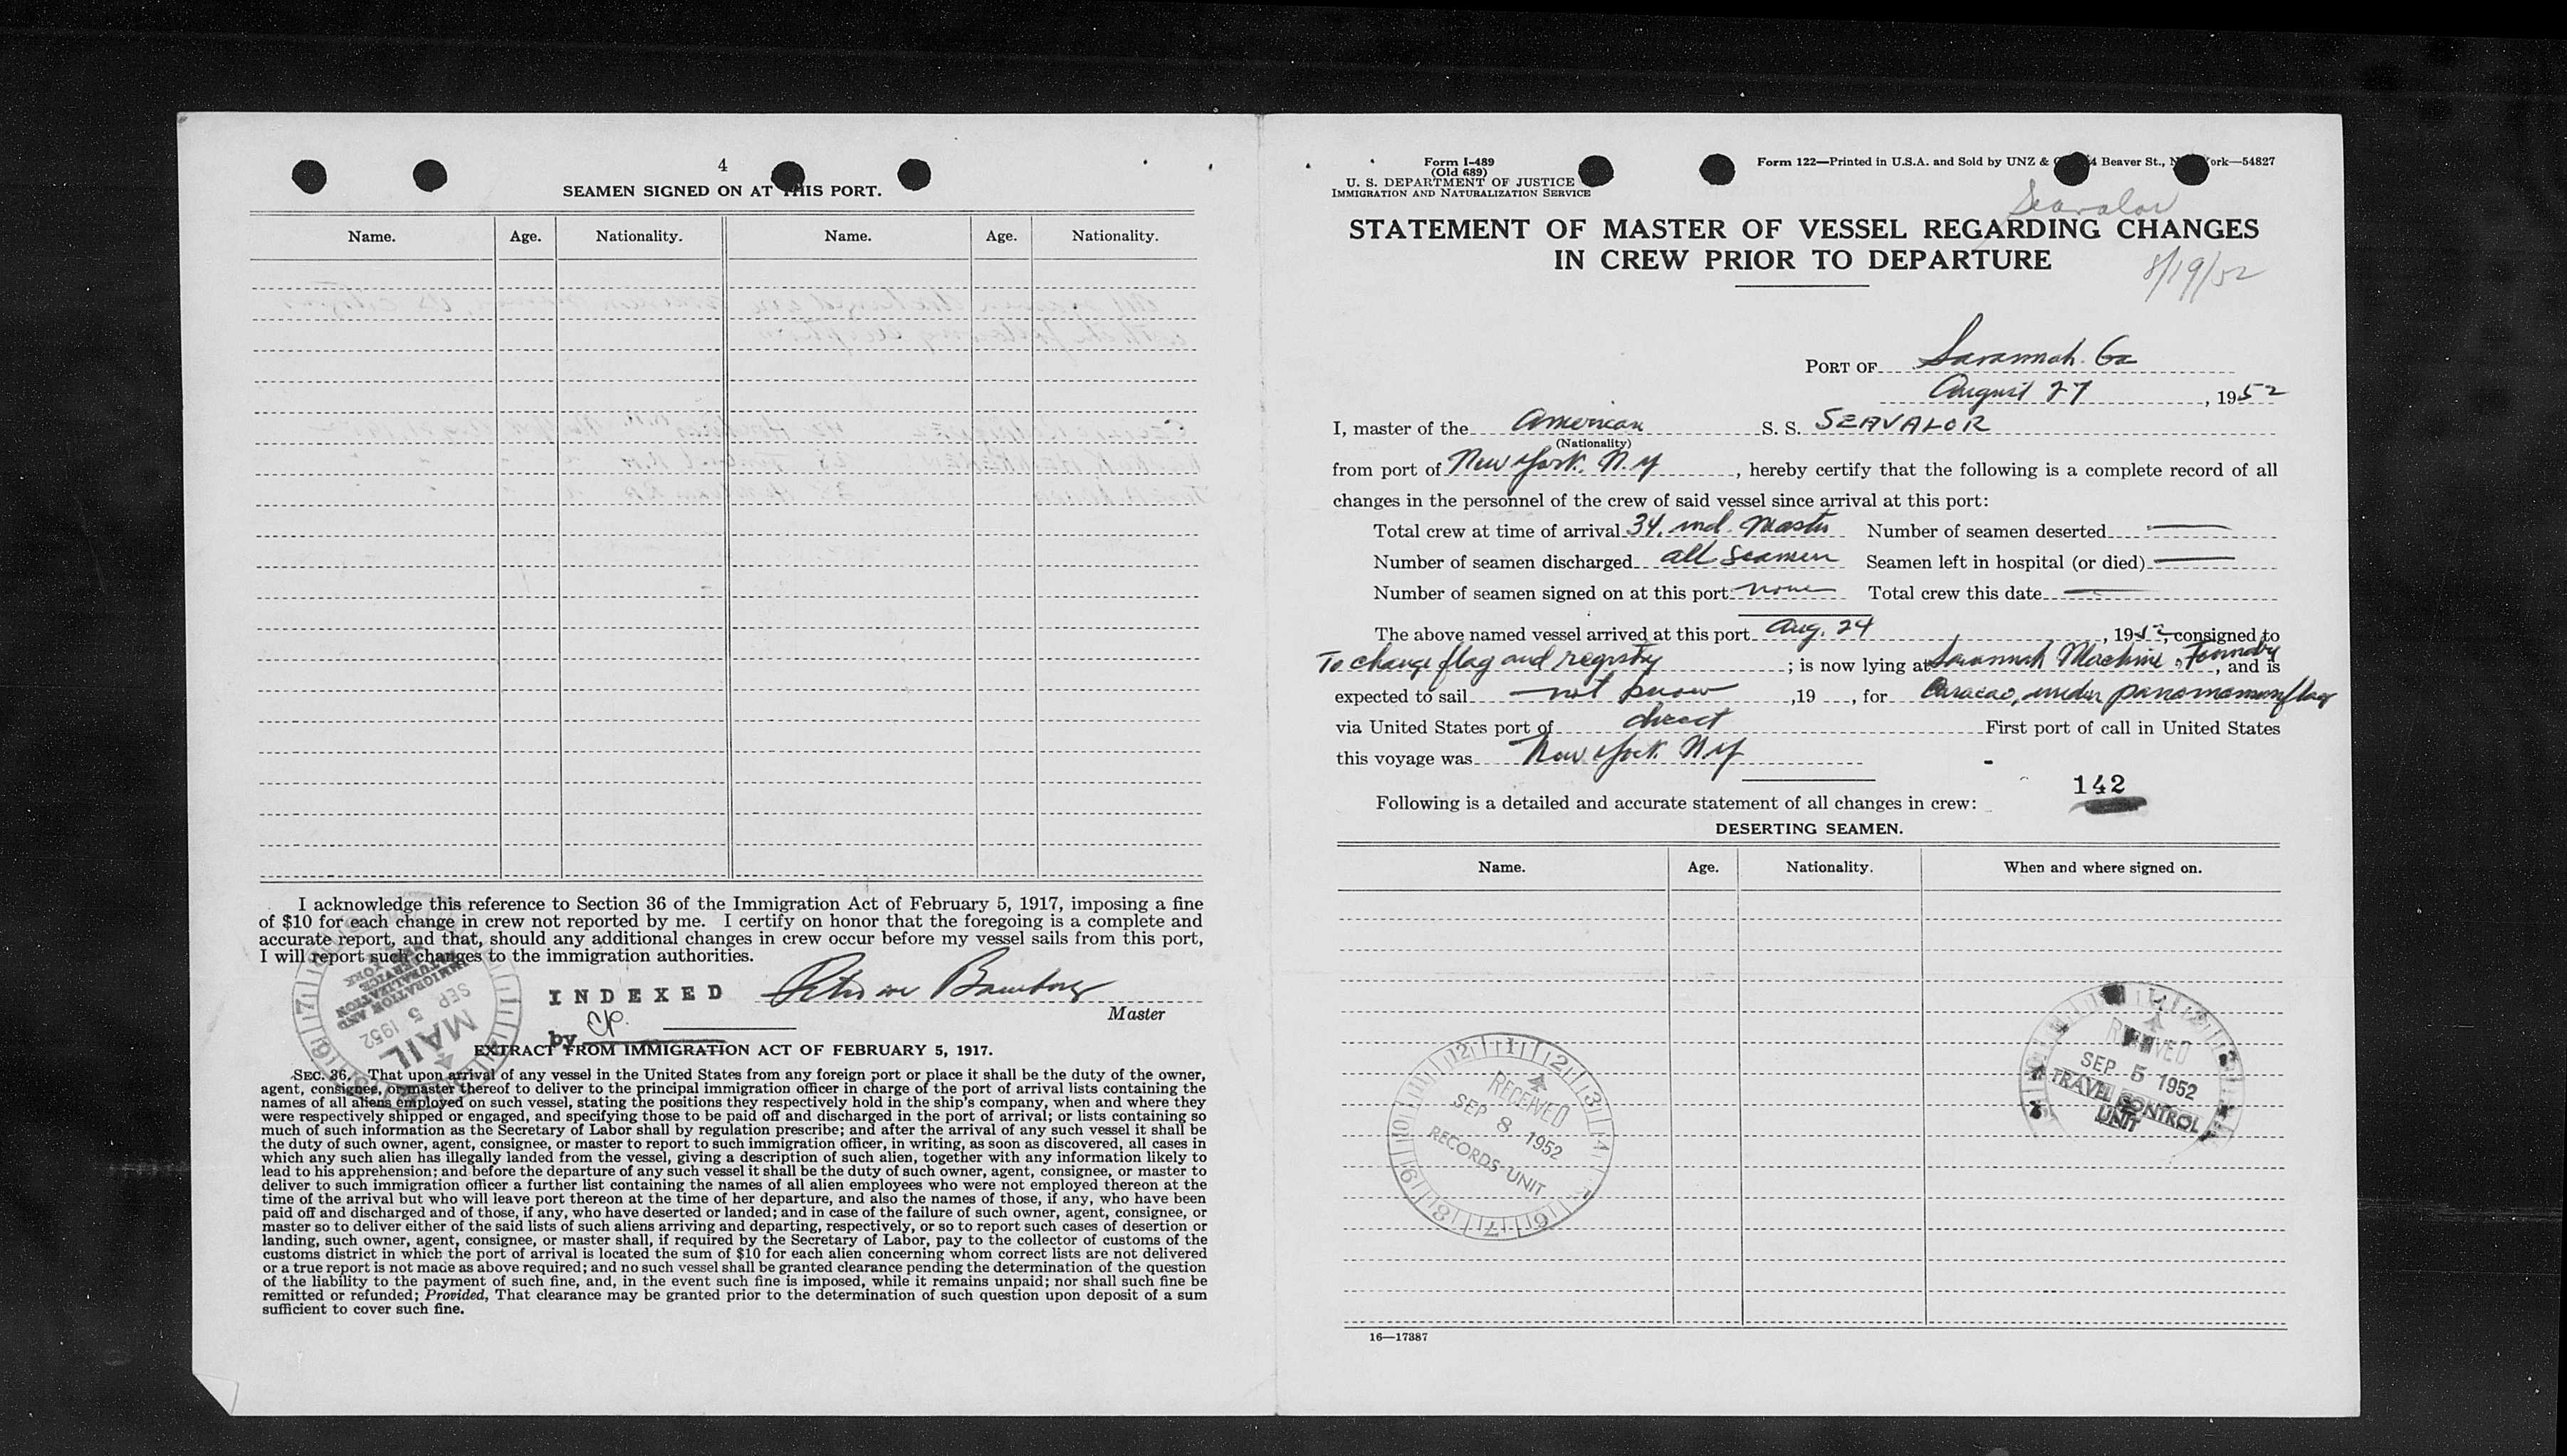 4
SEAMEN SIGNED ON AT THIS PORT.
Name. Age. Nationality. Name. Age. Nationality.
I acknowledge this reference to Section 36 of the Immigration Act of February 5, 1917, imposing a fine
of $10 for each change in crew not reported by me. I certify on honor that the foregoing is a complete and
accurate report, and that, should any additional changes in crew occur before my vessel sails from this port,
I will report such changes to the immigration authorities.
INDEXED
by CP.
Master
IMMIGRATION AND
NATURALIZATION
SERVICE
SEP 5 1952
MAIL
EXTRACT FROM IMMIGRATION ACT OF FEBRUARY 5, 1917.
SEC. 36. That upon arrival of any vessel in the United States from any foreign port or place it shall be the duty of the owner,
agent, consignee, or master thereof to deliver to the principal immigration officer in charge of the port of arrival lists containing the
names of all aliens employed on such vessel, stating the positions they respectively hold in the ship's company, when and where they
were respectively shipped or engaged, and specifying those to be paid off and discharged in the port of arrival; or lists containing so
much of such information as the Secretary of Labor shall by regulation prescribe; and after the arrival of any such vessel it shall be
the duty of such owner, agent, consignee, or master to report to such immigration officer, in writing, as soon as discovered, all cases in
which any such alien has illegally landed from the vessel, giving a description of such alien, together with any information likely to
lead to his apprehension; and before the departure of any such vessel it shall be the duty of such owner, agent, consignee, or master to
deliver to such immigration officer a further list containing the names of all alien employees who were not employed thereon at the
time of the arrival but who will leave port thereon at the time of her departure, and also the names of those, if any, who have been
paid off and discharged and of those, if any, who have deserted or landed; and in case of the failure of such owner, agent, consignee, or
master so to deliver either of the said lists of such aliens arriving and departing, respectively, or so to report such cases of desertion or
landing, such owner, agent, consignee, or master shall, if required by the Secretary of Labor, pay to the collector of customs of the
customs district in which the port of arrival is located the sum of $10 for each alien concerning whom correct lists are not delivered
or a true report is not made as above required; and no such vessel shall be granted clearance pending the determination of the question
of the liability to the payment of such fine, and, in the event such fine is imposed, while it remains unpaid; nor shall such fine be
remitted or refunded; Provided, That clearance may be granted prior to the determination of such question upon deposit of a sum
sufficient to cover such fine.
Form I-489
(Old 689)
U. S. DEPARTMENT OF JUSTICE
IMMIGRATION AND NATURALIZATION SERVICE
Form 122—Printed in U.S.A. and Sold by UNZ & Beaver St., ork—54827
Seavalor
STATEMENT OF MASTER OF VESSEL REGARDING CHANGES
IN CREW PRIOR TO DEPARTURE
8/19/52
PORT OF Savannah. Ga
August 27, 1952
I, master of the American S. S. SEAVALOR
(Nationality)
from port of New York. N.Y, hereby certify that the following is a complete record of all
changes in the personnel of the crew of said vessel since arrival at this port:
Total crew at time of arrival 34. incl. Master Number of seamen deserted —
Number of seamen discharged all seamen Seamen left in hospital (or died) —
Number of seamen signed on at this port none Total crew this date —
The above named vessel arrived at this port Aug. 24, 1952, consigned to
To change flag and registry; is now lying at Savannah Machine & Foundry, and is
expected to sail not know, 19 , for Curacao, under panamanian flag
via United States port of direct First port of call in United States
this voyage was New York N.Y
142
Following is a detailed and accurate statement of all changes in crew:
DESERTING SEAMEN.
Name. Age. Nationality. When and where signed on.
RECEIVED
SEP 8 1952
RECORDS UNIT
RECEIVED
SEP 5 1952
TRAVEL CONTROL
UNIT
16—17387